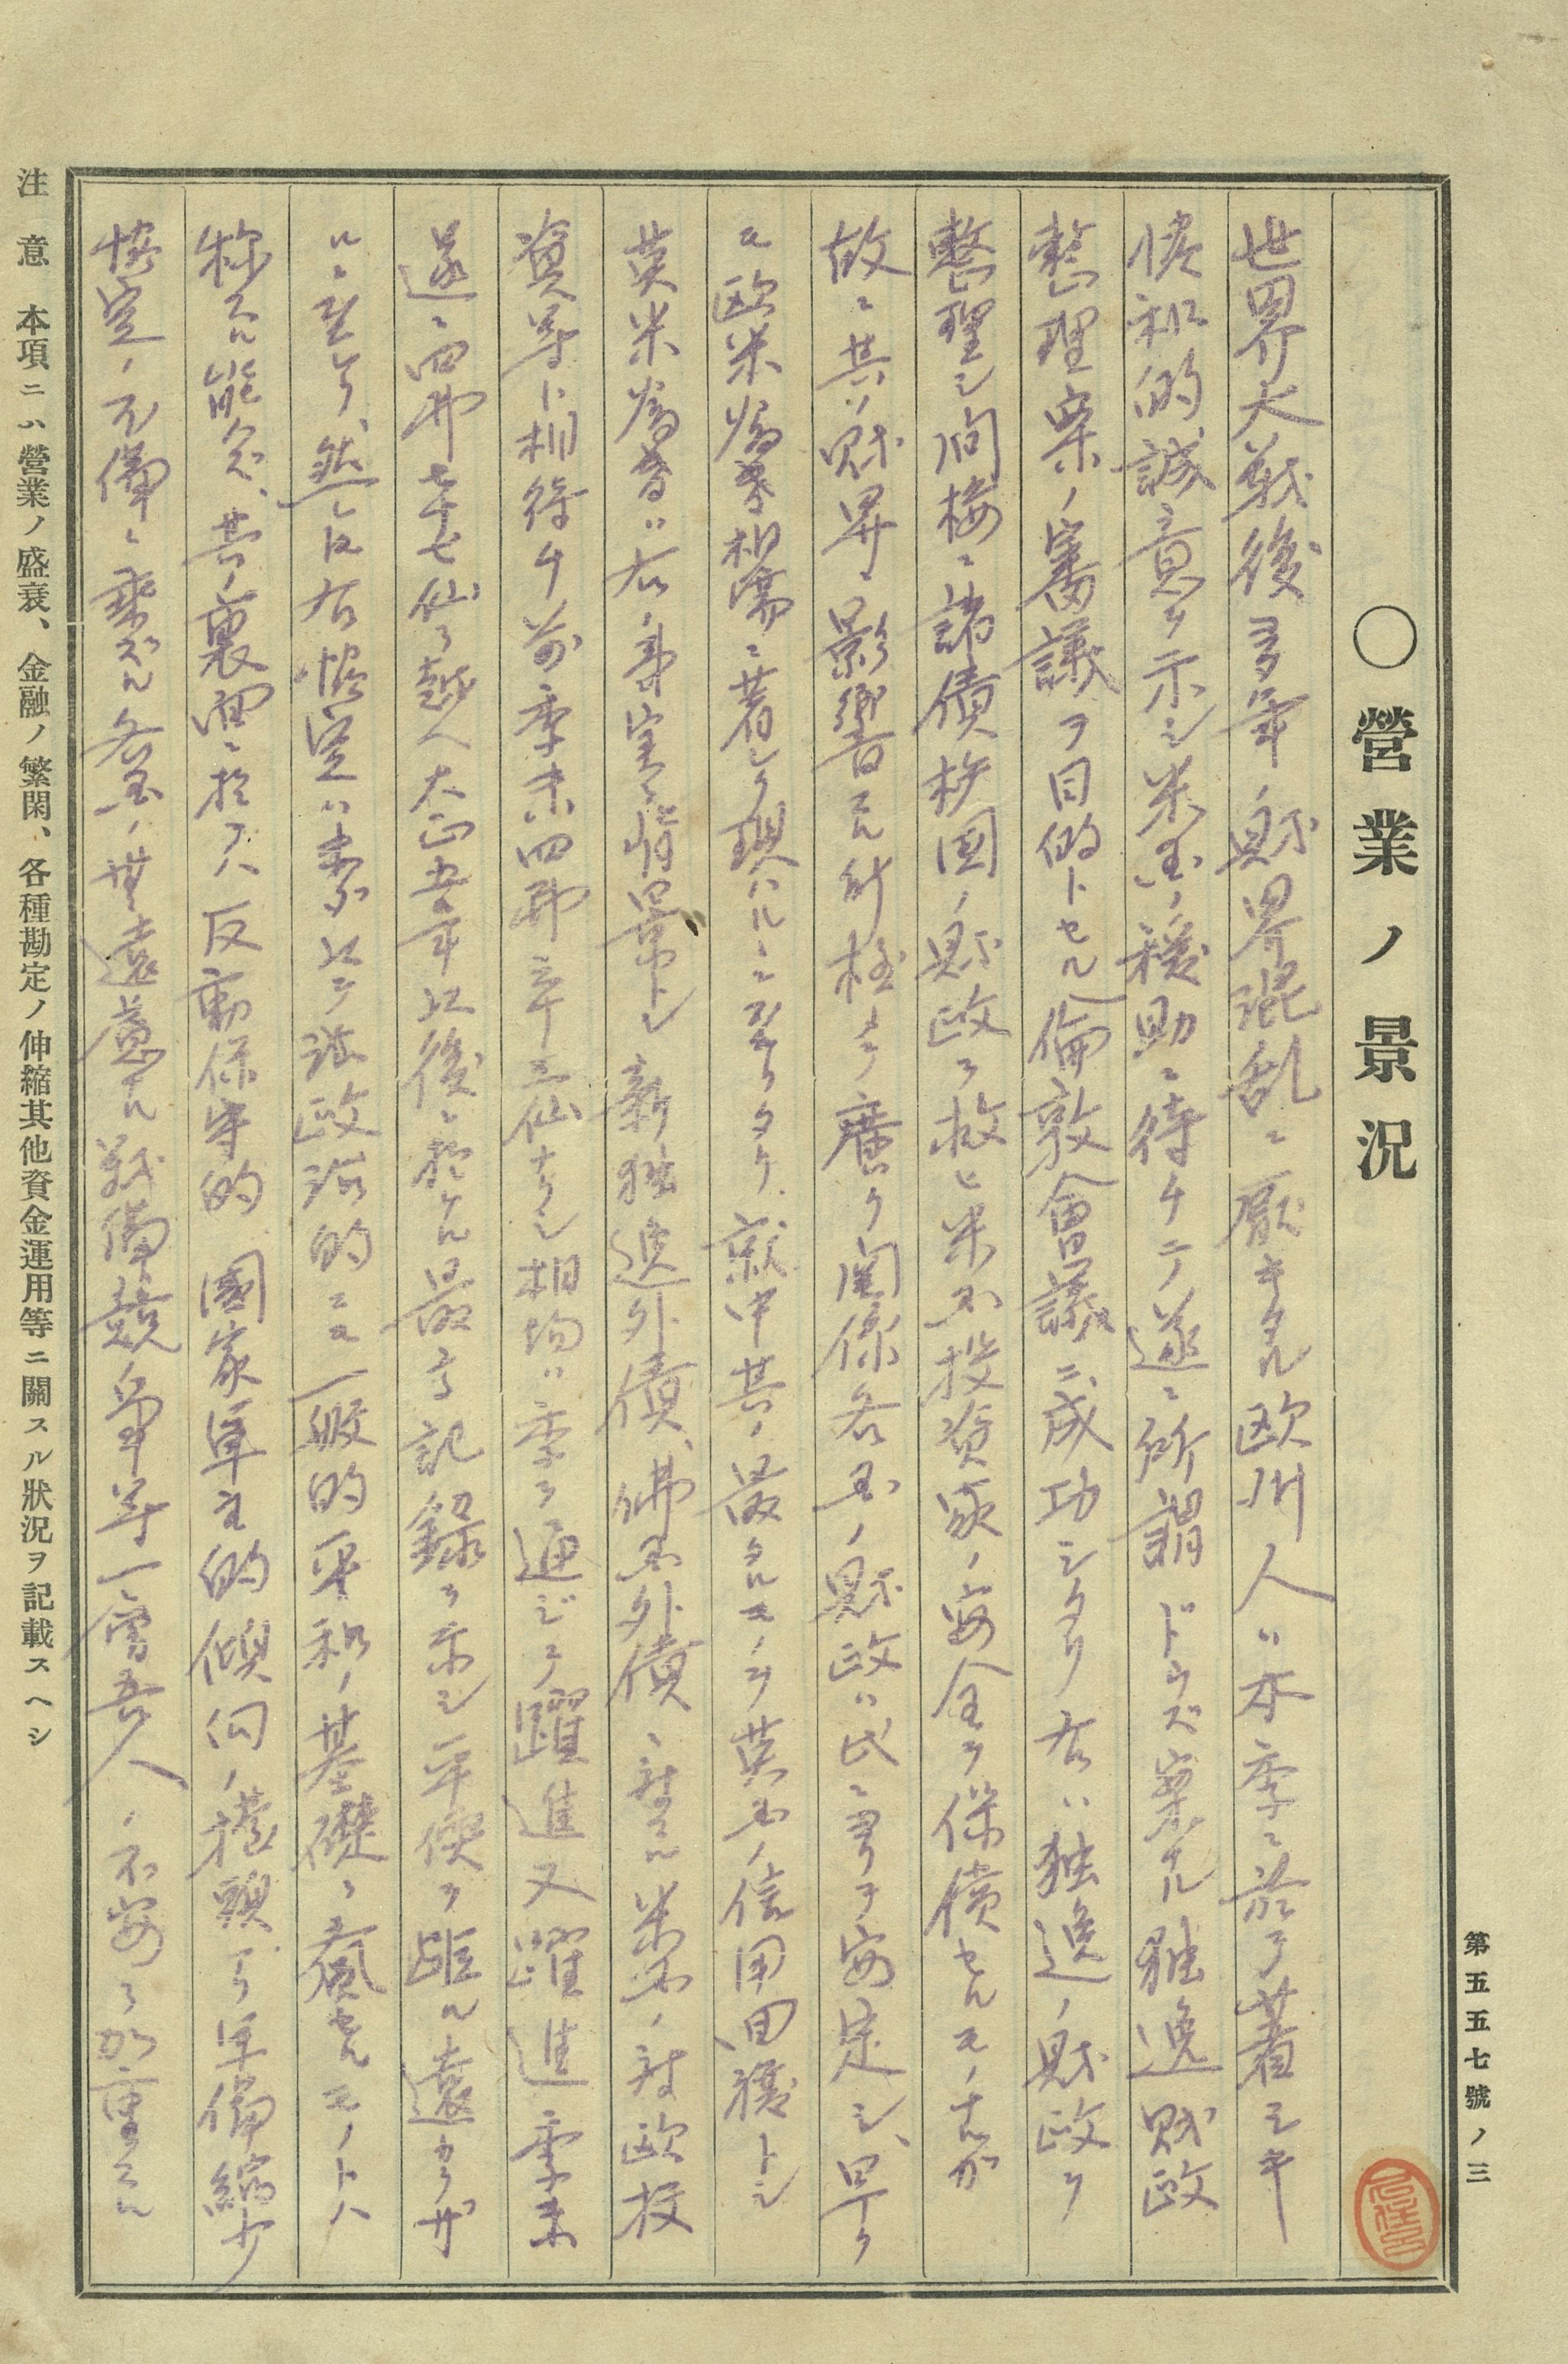 第五五七號ノ三
○營業ノ景況
世界大戰後多年ノ財界混乱ニ厭キタル欧洲人ハ本季ニ於テ著シキ
協和的誠意ヲ示シ米国ノ援助ニ待チテ遂ニ所謂ドウズ案ナル独逸財政
整理案ノ審議ヲ目的トセル倫敦會議ニ成功シタリ右ハ独逸ノ財政ヲ
整理シ間接ニ諸債権国ノ財政ヲ救ヒ米国投資家ノ安全ヲ保償セルモノナルガ
故ニ其ノ財界ニ影響スル所極メテ廣ク関係各国ノ財政ハ此ニ由テ安定シ、早ク
モ欧米爲替相場ニ著シク現ハルルニ至リタリ、就中其ノ最タルモノヲ英国ノ信用回復トシ
英米爲替ハ右ノ事実ヲ背景トシ新独逸外債、佛国外債ニ対スル米国ノ対欧投
資等ト相待チ前季末四弗三十二仙ナリシ相場ハ季ヲ通ジテ躍進又躍進季末
遂ニ四弗七十七仙ヲ越ヘ大正五年以後ニ於ケル最高記録ヲ示シ平價ヲ距ル遠カラザ
ルニ至レリ、然レ𪜈右協定ハ素ヨリ政治的ニモ一般的平和ノ基礎ヲ奠セルモノトハ
称スル能ハズ、其ノ裏面ニ於テハ反動保守的國家軍主的傾向ノ擡頭アリ軍備縮少
協定ノ不備ニ乘ズル各国ノ無遠慮ナル戰備競争等一層吾人ノ不安ヲ加重スル
注意 本項ニハ營業ノ盛衰、金融ノ繁閑、各種勘定ノ伸縮其他資金運用等ニ關スル狀況ヲ記載スヘシ